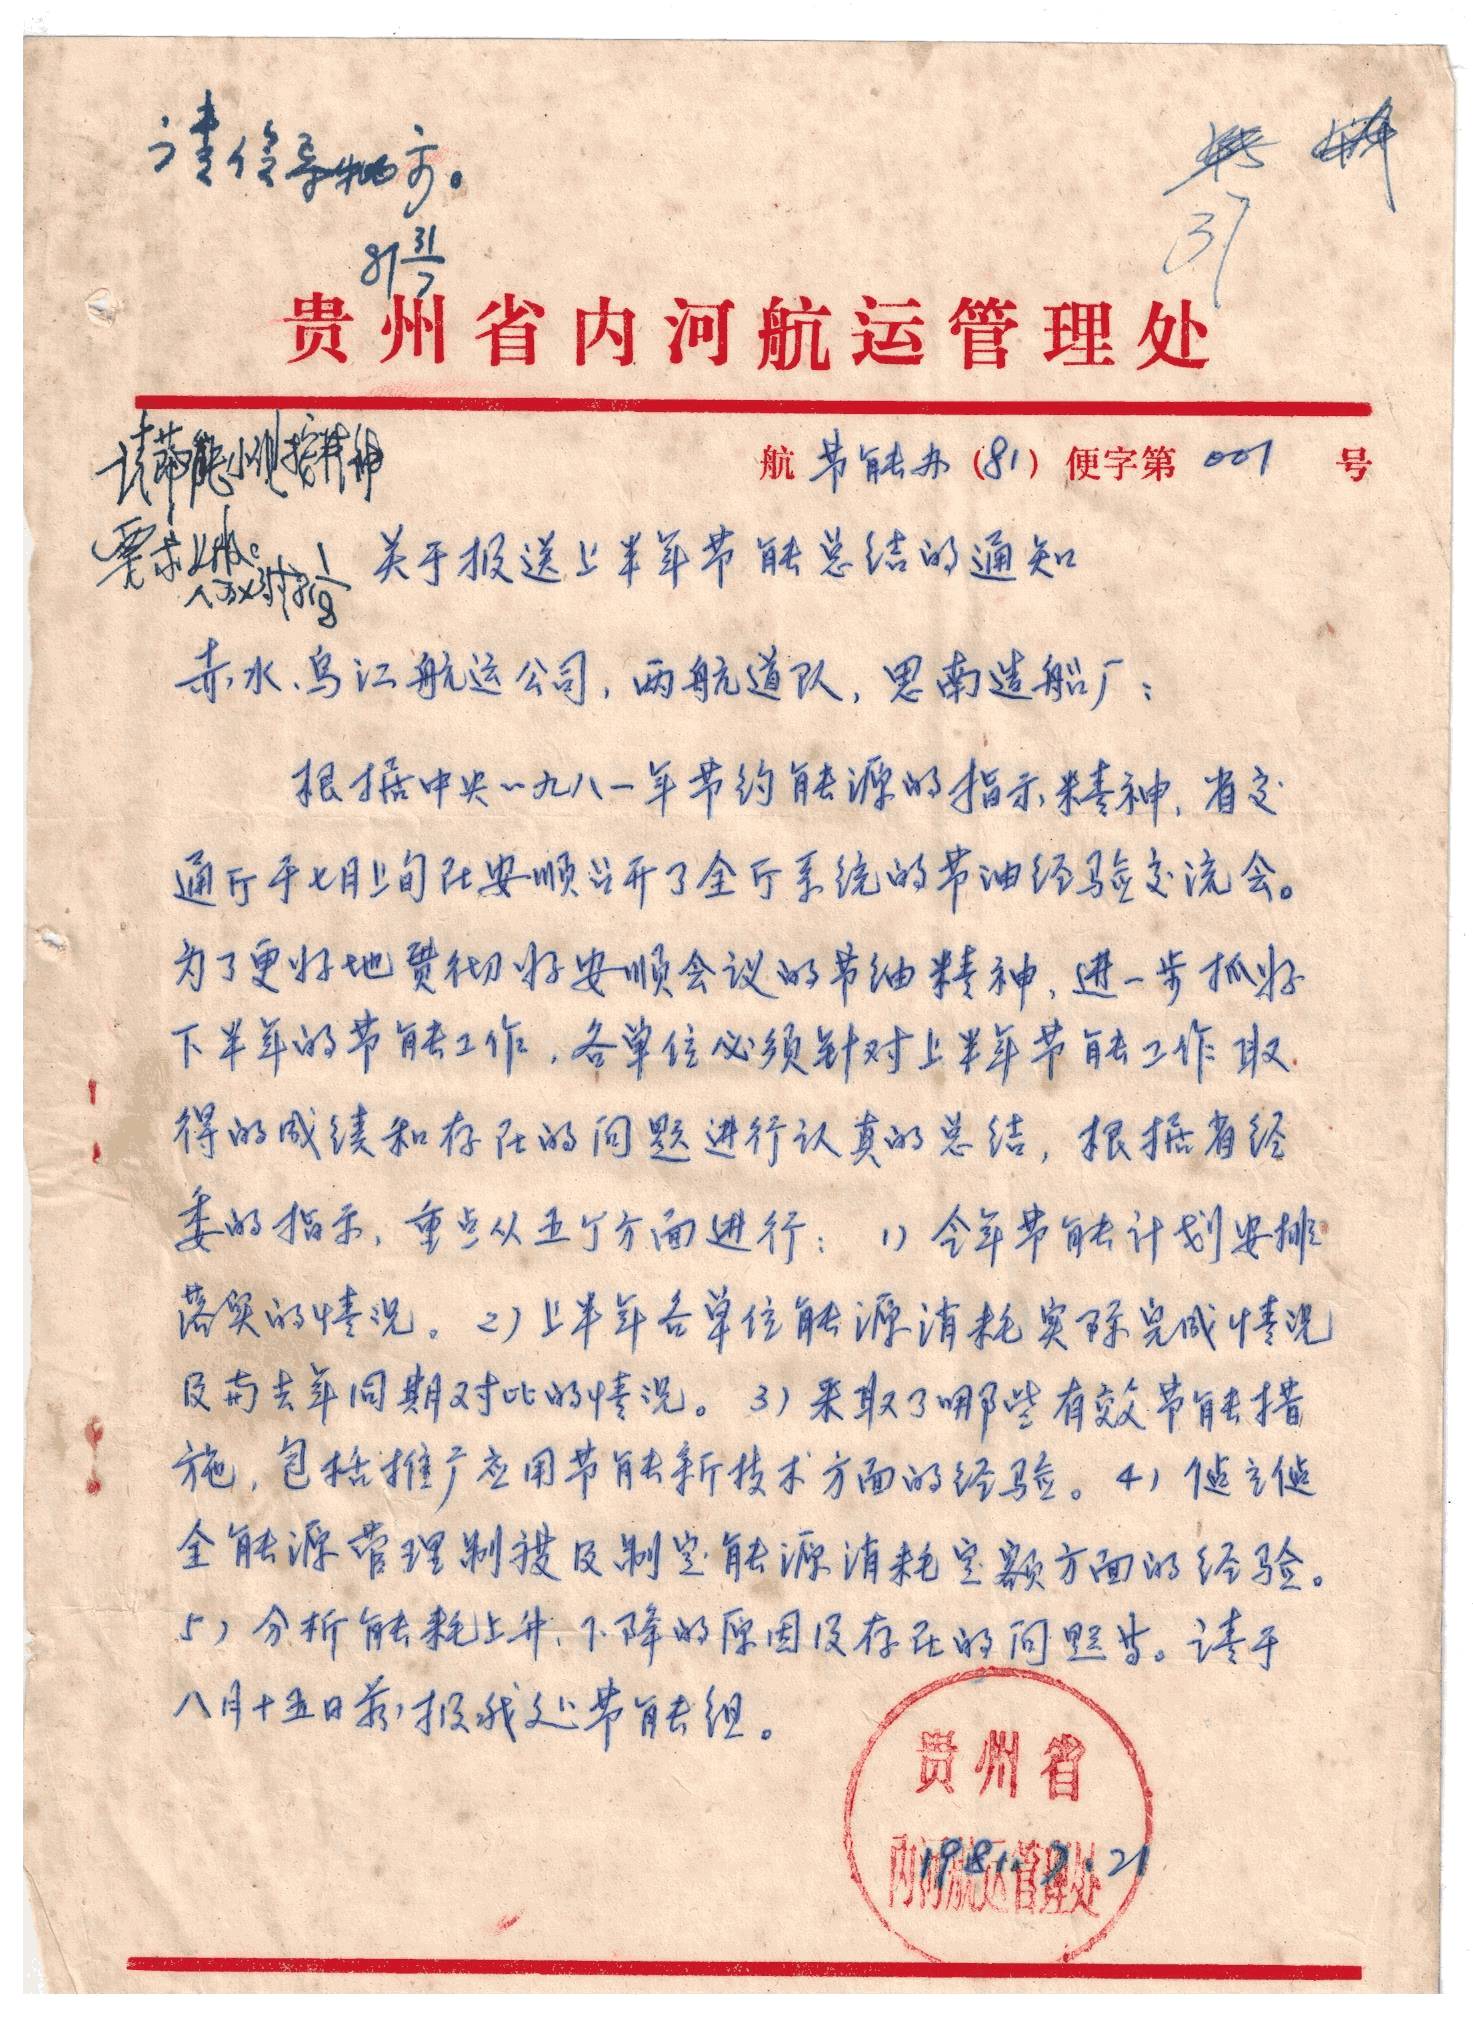 请领导批示。
81 31/7
贵州省内河航运管理处
航节能办(81)便字第007号
请节能小组按精神
要求上报。
关于报送上半年节能总结的通知
赤水、乌江航运公司，两航道队，思南造船厂：
根据中央一九八一年节约能源的指示精神，省交
通厅于七月上旬在安顺召开了全厅系统的节油经验交流会。
为了更好地贯彻好安顺会议的节油精神，进一步抓好
下半年的节能工作，各单位必须针对上半年节能工作取
得的成绩和存在的问题进行认真的总结，根据省经
委的指示，重点从五个方面进行：1）今年节能计划安排
落实的情况。2）上半年各单位能源消耗实际完成情况
及与去年同期对比的情况。3）采取了哪些有效节能措
施，包括推广应用节能新技术方面的经验。4）健立健
全能源管理制度及制定能源消耗定额方面的经验。
5）分析能耗上升、下降的原因及存在的问题等。请于
八月十五日前报我处节能组。
贵州省
内河航运管理处
1981.7.21